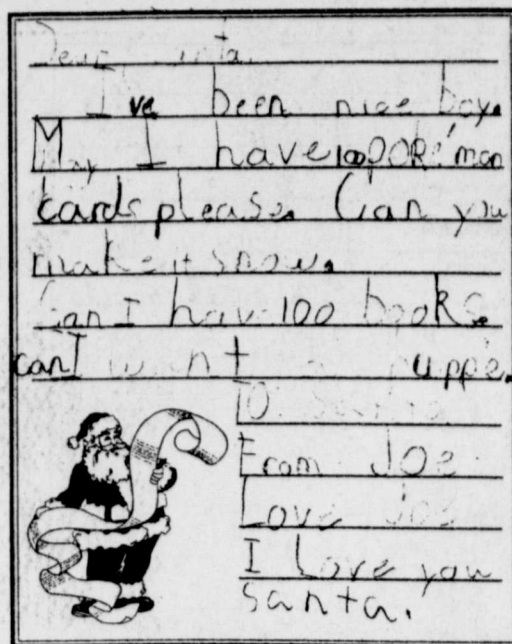 Dear
I've been nice boy.
May I have 100 POKéman
cards please. Can you
make it snow.
Can I have 100 books.
can I w nt uppe.
To Santa
From Joe
Love Joe
I Love you
Santa.